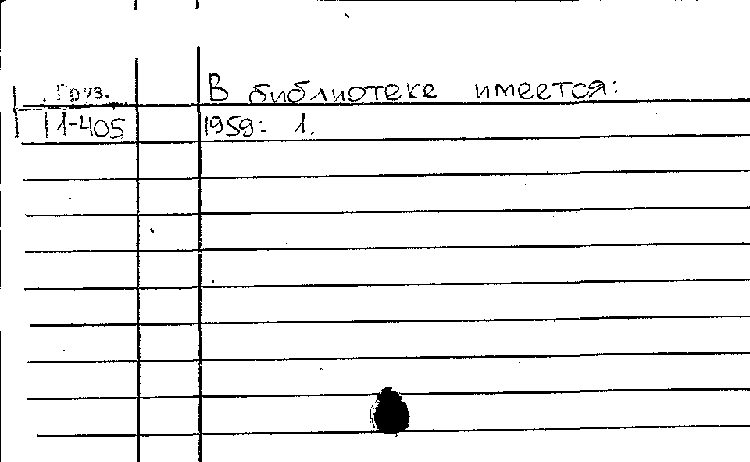 Груз. В библиотеке имеется:
11-405 1959: 1.